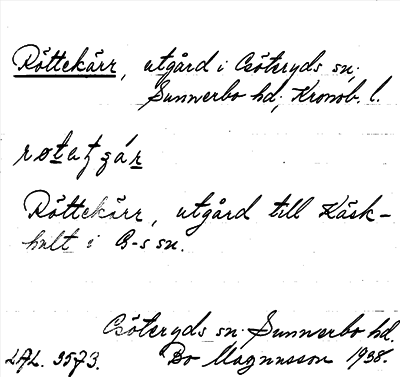 Röttekärr, utgård i Göteryds sn;
Sunnerbo hd; Kronob. l.
Röttekärr, utgård till Käsk-
hult i G-s sn.
Göteryds sn. Sunnerbo hd.
LAL. 3573. Bo Magnusson 1938.